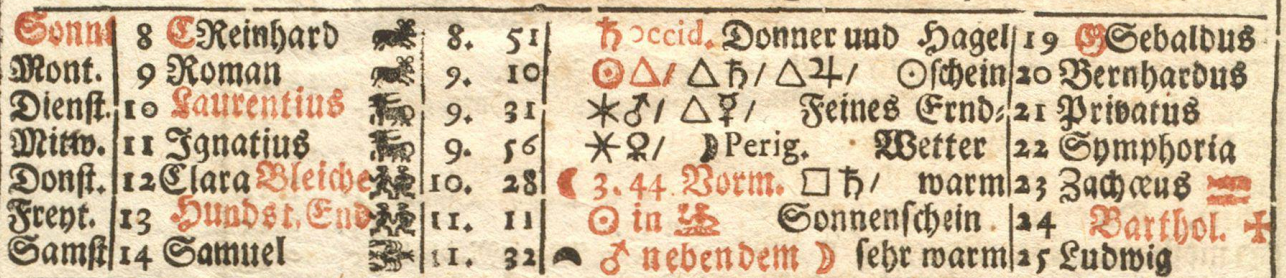 Sonnt 8 C Reinhard 8. 51 ♄ occid. Donner und Hagel 19 G Sebaldus
Mont. 9 Roman 9. 10 ☉△/ △♄/ △♃/ ☉ſchein 20 Bernhardus
Dienſt. 10 Laurentius 9. 31 ✶♂/ △☿/ Feines Ernd⸗ 21 Privatus
Mittw. 11 Ignatius 9. 56 ✶♀/ ☽Perig. Wetter 22 Symphoria
Donſt. 12 Clara Bleiche 10. 28 ☾ 3. 44. Vorm. □♄/ warm 23 Zachæus
Freyt. 13 Hundst. End 11. 11 ☉ in Sonnenſchein 24 Barthol. ✠
Samſt 14 Samuel 11. 32 ♂ neben dem ☽ ſehr warm 25 Ludwig